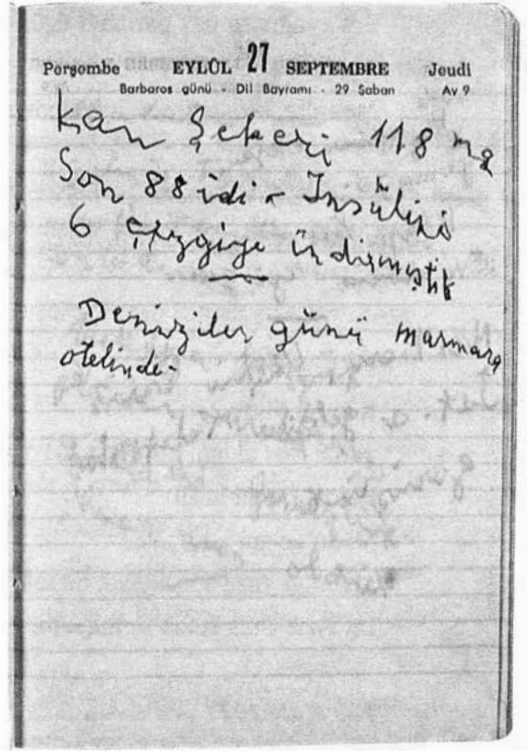 Perşembe EYLÛL 27 SEPTEMBRE Jeudi
Barbaros günü - Dil Bayramı - 29 Şaban Ay 9
Kan Şekeri 118 mg
Son 88 idi - İnsülini
6 çizgiye indirmiştik
Denizciler günü marmara
otelinde-